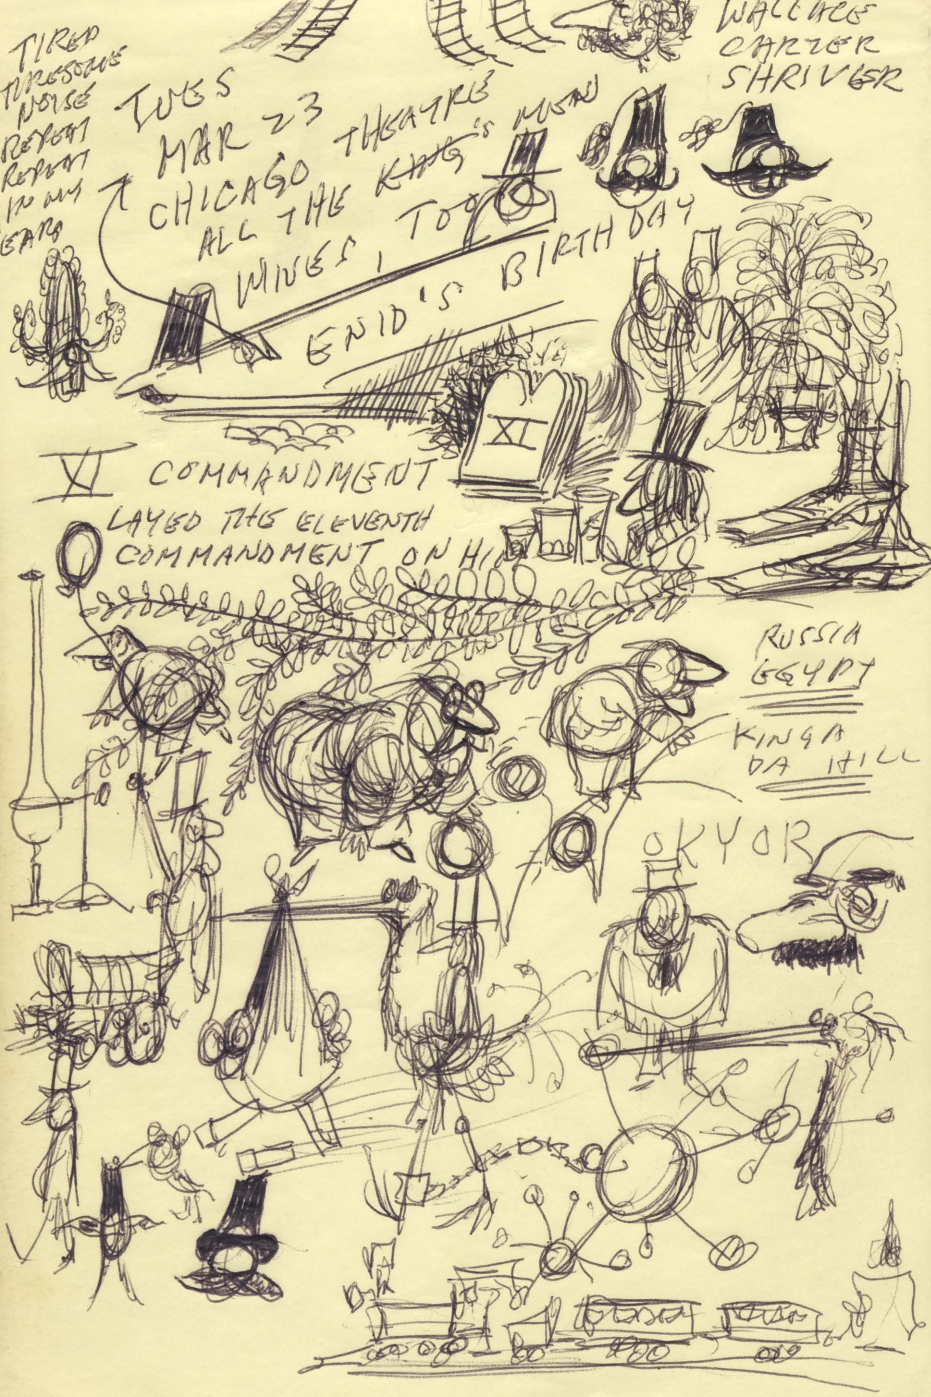 TIRED
TIRESOME
NOISE
REPEAT
REPEAT
IN MY
EARS
TUES
MAR 23
CHICAGO THEATRE
ALL THE KING'S MEN
WIVES, TOO
ENID'S BIRTHDAY
WALLACE
CARTER
SHRIVER
XI
XI COMMANDMENT
LAYED THE ELEVENTH
COMMANDMENT ON HIM
RUSSIA
EGYPT
KINGA
DA HILL
OKYOR